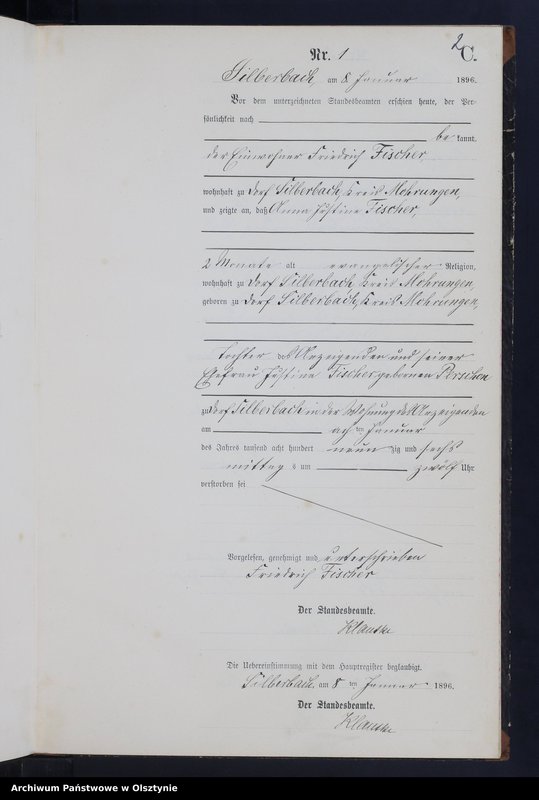 2
C.
Nr. 1
Silberbach, am 8 Januar 1896.
Vor dem unterzeichneten Standesbeamten erschien heute, der Per-
sönlichkeit nach
be kannt,
der Einwohner Friedrich Fischer,
wohnhaft zu Dorf Silberbach, Kreis Mohrungen,
und zeigte an, daß Anna Justine Fischer,
2 Monate alt evangelischer Religion,
wohnhaft zu Dorf Silberbach, Kreis Mohrungen,
geboren zu Dorf Silberbach, Kreis Mohrungen,
Tochter des Anzeigenden und seiner
Ehefrau Justine Fischer gebornen
zu Dorf Silberbach in der Wohnung des Anzeigenden
am ach ten Januar
des Jahres tausend acht hundert neun zig und sechs
mittag s um zwölf Uhr
verstorben sei
Vorgelesen, genehmigt und unterschrieben
Friedrich Fischer
Der Standesbeamte.
Die Uebereinstimmung mit dem Hauptregister beglaubigt.
Silberbach, am 8 ten Januar 1896.
Der Standesbeamte.
Archiwum Państwowe w Olsztynie